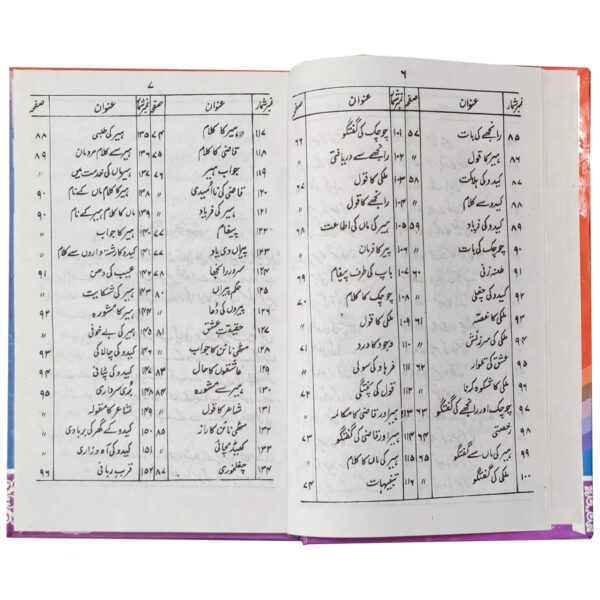 ۶
نمبرشمار عنوان صفحہ نمبرشمار عنوان صفحہ
۸۵ رانجھے کی بات ۵۷ ۱۰۱ چوچک کی گفتگو ۶۶
۸۶ ہیر کا قول ۱۰۲ رانجھے سے دریافتی
۸۷ کیدو کی ہلاکت ۵۸ ۱۰۳ ملکی کا قول ۶۷
۸۸ کیدو سے کلام ۱۰۴ رانجھے کا قول
۸۹ کیدو کی فریاد ۵۹ ۱۰۵ ہیر کی ماں کی اطاعت ۶۸
۹۰ چوچک کی بات ۱۰۶ پیر کا فرمان
۹۱ طعنہ زنی ۶۰ ۱۰۷ باپ کی طرف پیغام ۶۹
۹۲ کیدو کی چغلی ۱۰۸ چوچک کا کلام
۹۳ ملکی کا غصہ ۶۱ ۱۰۹ ملکی کا قول ۷۰
۹۴ ملکی کی سرزنش ۱۱۰ وجود کا درد ۷۱
۹۵ عشق کی تلوار ۶۲ ۱۱۱ فرہاد کی سولی
۹۶ ملکی کا شکوہ کرنا ۱۱۲ قول کی پختگی ۷۲
۹۷ چوچک اور رانجھے کی گفتگو ۶۳ ۱۱۳ ہیر اور قاضی کا مکالمہ
۹۸ رخصتی ۶۴ ۱۱۴ ہیر اور قاضی کی گفتگو ۷۳
۹۹ ہیر کی ماں سے گفتگو ۶۵ ۱۱۵ ہیر کی ماں کا کلام
۱۰۰ ملکی کی گفتگو ۱۱۶ تنبیہات ۷۴
۷
نمبرشمار عنوان صفحہ نمبرشمار عنوان صفحہ
۱۱۷ ہیر کا کلام ۷۴ ۱۳۵ ہیر کی طلبی ۸۸
۱۱۸ قاضی کا کلام ۷۵ ۱۳۶ ہیر سے کلام مردمان ۸۹
۱۱۹ جواب ہیر ۷۶ ۱۳۷ ہیر ماں کی خدمت میں
۱۲۰ قاضی کی ناامیدی ۱۳۸ ہیر کا کلام ماں کے نام ۹۰
۱۲۱ ہیر کی فریاد ۱۳۹ ماں کا کلام ہیر کے نام ۹۰
۱۲۲ پیغام ۷۷ ۱۴۰ ہیر کا جواب
۱۲۳ پیراں دی یاد ۷۷ ۱۴۱ کیدو کا رشتہ داروں سے کلام
۱۲۴ سرور رانجھا ۷۸ ۱۴۲ عجیب کی دھن ۹۱
۱۲۵ حکم پیراں ۱۴۳ ہیر کی شکایت
۱۲۶ پیروں کی دُعا ۱۴۴ ہیر کا مشورہ ۹۲
۱۲۷ حقیقت عشق ۸۱ ۱۴۵ ہیر کی بے خوفی
۱۲۸ مٹھی نائن کا جواب ۱۴۶ کیدو کی چالاکی ۹۳
۱۲۹ عاشقوں کا حال ۸۳ ۱۴۷ کیدو کی پٹائی ۹۴
۱۳۰ ہیر سے مشورہ ۸۴ ۱۴۸ سرداری ۹۵
۱۳۱ شاعر کا قول ۱۴۹ شاعر کا مقولہ
۱۳۲ مٹھی نائن کا راز ۸۵ ۱۵۰ کیدو کے گھر کی بربادی
۱۳۳ ۱۵۱ کیدو کی آہ وزاری
۱۳۴ چغلخوری ۸۷ ۱۵۲ قرب ربانی ۹۶